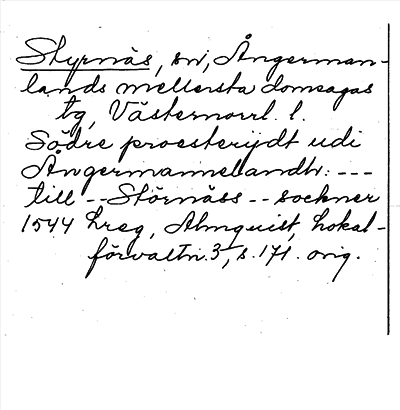 Styrnäs, sn, Ångerman-
lands mellersta domsagas
tg, Västernorrl. l.
Södre proesterijdt udi
Ångermannelandh: ---
till -- Störnäss -- sockner
1544 Lreg, Almquist, Lokal-
förvaltn. 3, s. 171. orig.